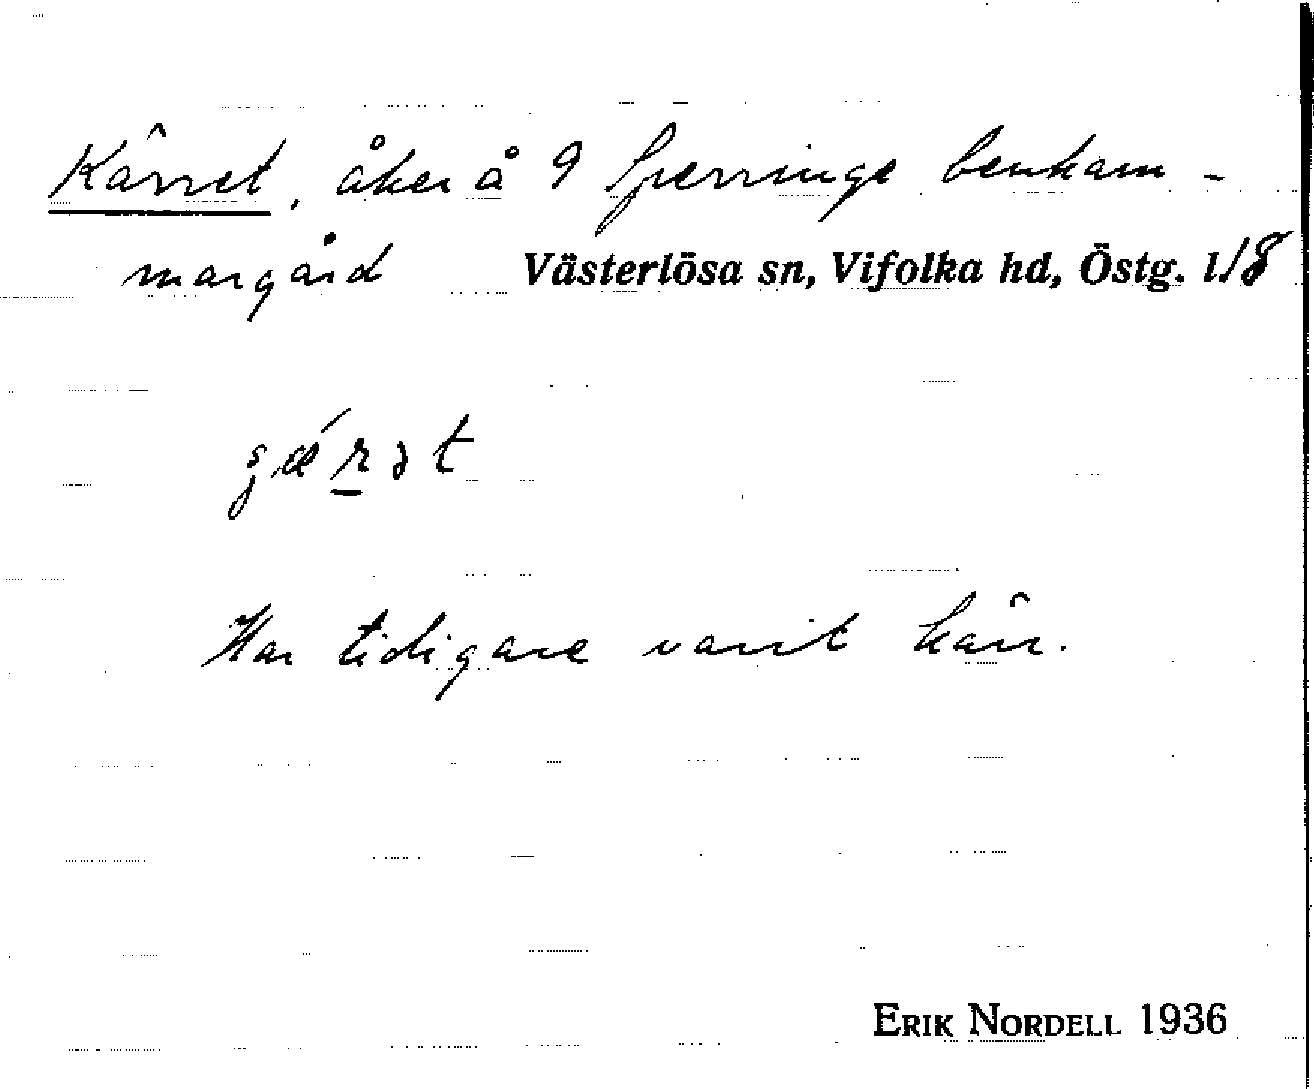 Kärret, åker å 9 Sperringe benkam-
margård Västerlösa sn, Vifolka hd, Östg. l/8
Har tidigare varit kärr.
ERIK NORDELL 1936